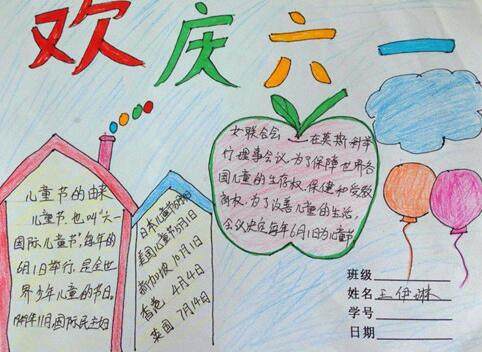 欢庆六一
儿童节的由来
儿童节,也叫“六一
国际儿童节,每年的
6月1日举行,是全世
界少年儿童的节日。
1949年11月国际民主妇
日本儿童节3月3日
美国儿童节5月1日
新加坡 10月1日
香港 4月4日
英国 7月14日
女联合会 在莫斯科举
行理事会议,为了保障世界各
国儿童的生存权、保健和受教
育权,为了改善儿童的生活,
会议决定每年6月1日为儿童节
班级
姓名 王伊琳
学号
日期